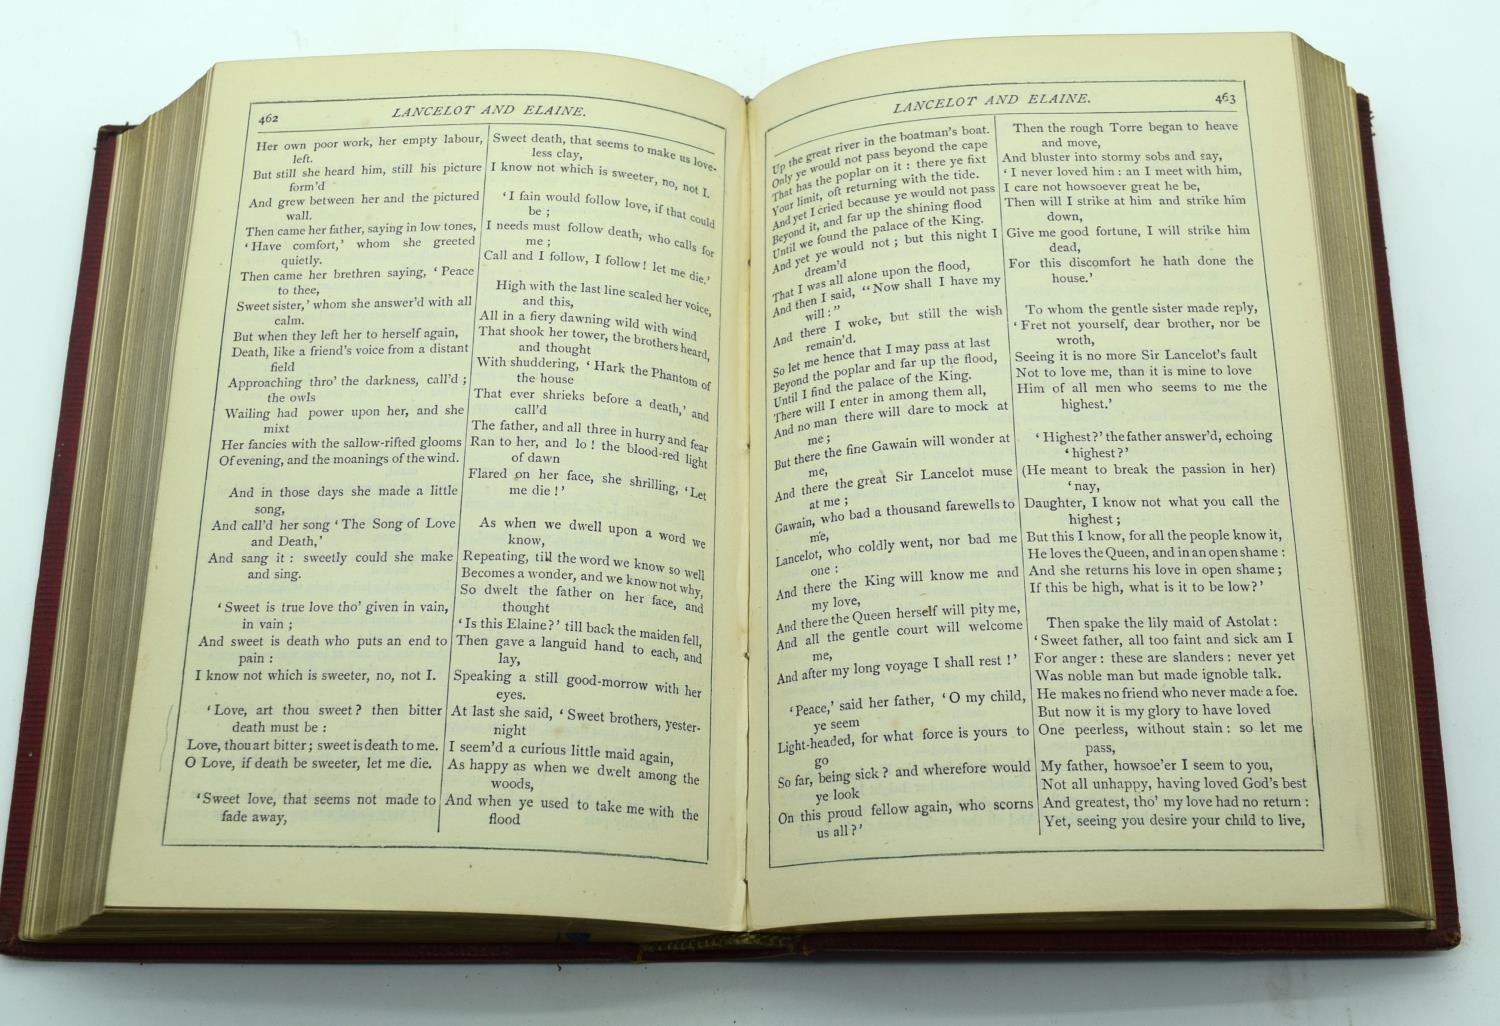 462
LANCELOT AND ELAINE.
Her own poor work, her empty labour,
left.
But still she heard him, still his picture
form'd
And grew between her and the pictured
wall.
Then came her father, saying in low tones,
‘Have comfort,’ whom she greeted
quietly.
Then came her brethren saying, ‘Peace
to thee,
Sweet sister,’ whom she answer'd with all
calm.
But when they left her to herself again,
Death, like a friend's voice from a distant
field
Approaching thro' the darkness, call'd;
the owls
Wailing had power upon her, and she
mixt
Her fancies with the sallow-rifted glooms
Of evening, and the moanings of the wind.
And in those days she made a little
song,
And call'd her song ‘The Song of Love
and Death,’
And sang it: sweetly could she make
and sing.
‘Sweet is true love tho' given in vain,
in vain;
And sweet is death who puts an end to
pain:
I know not which is sweeter, no, not I.
‘Love, art thou sweet? then bitter
death must be:
Love, thou art bitter; sweet is death to me.
O Love, if death be sweeter, let me die.
‘Sweet love, that seems not made to
fade away,
Sweet death, that seems to make us love-
less clay,
I know not which is sweeter, no, not I.
‘I fain would follow love, if that could
be;
I needs must follow death, who calls for
me;
Call and I follow, I follow! let me die.’
High with the last line scaled her voice,
and this,
All in a fiery dawning wild with wind
That shook her tower, the brothers heard,
and thought
With shuddering, ‘Hark the Phantom of
the house
That ever shrieks before a death,’ and
call'd
The father, and all three in hurry and fear
Ran to her, and lo! the blood-red light
of dawn
Flared on her face, she shrilling, ‘Let
me die!’
As when we dwell upon a word we
know,
Repeating, till the word we know so well
Becomes a wonder, and we know not why,
So dwelt the father on her face, and
thought
‘Is this Elaine?’ till back the maiden fell,
Then gave a languid hand to each, and
lay,
Speaking a still good-morrow with her
eyes.
At last she said, ‘Sweet brothers, yester-
night
I seem'd a curious little maid again,
As happy as when we dwelt among the
woods,
And when ye used to take me with the
flood
LANCELOT AND ELAINE.
463
Up the great river in the boatman's boat.
Only ye would not pass beyond the cape
That has the poplar on it: there ye fixt
Your limit, oft returning with the tide.
And yet I cried because ye would not pass
Beyond it, and far up the shining flood
Until we found the palace of the King.
And yet ye would not; but this night I
dream'd
That I was all alone upon the flood,
And then I said, “Now shall I have my
will:”
And there I woke, but still the wish
remain'd.
So let me hence that I may pass at last
Beyond the poplar and far up the flood,
Until I find the palace of the King.
There will I enter in among them all,
And no man there will dare to mock at
me;
But there the fine Gawain will wonder at
me,
And there the great Sir Lancelot muse
at me;
Gawain, who bad a thousand farewells to
me,
Lancelot, who coldly went, nor bad me
one:
And there the King will know me and
my love,
And there the Queen herself will pity me,
And all the gentle court will welcome
me,
And after my long voyage I shall rest!’
‘Peace,’ said her father, ‘O my child,
ye seem
Light-headed, for what force is yours to
go
So far, being sick? and wherefore would
ye look
On this proud fellow again, who scorns
us all?’
Then the rough Torre began to heave
and move,
And bluster into stormy sobs and say,
‘I never loved him: an I meet with him,
I care not howsoever great he be,
Then will I strike at him and strike him
down,
Give me good fortune, I will strike him
dead,
For this discomfort he hath done the
house.’
To whom the gentle sister made reply,
‘Fret not yourself, dear brother, nor be
wroth,
Seeing it is no more Sir Lancelot's fault
Not to love me, than it is mine to love
Him of all men who seems to me the
highest.’
‘Highest?’ the father answer'd, echoing
‘highest?’
(He meant to break the passion in her)
‘nay,
Daughter, I know not what you call the
highest;
But this I know, for all the people know it,
He loves the Queen, and in an open shame:
And she returns his love in open shame;
If this be high, what is it to be low?’
Then spake the lily maid of Astolat:
‘Sweet father, all too faint and sick am I
For anger: these are slanders: never yet
Was noble man but made ignoble talk.
He makes no friend who never made a foe.
But now it is my glory to have loved
One peerless, without stain: so let me
pass,
My father, howsoe'er I seem to you,
Not all unhappy, having loved God's best
And greatest, tho' my love had no return:
Yet, seeing you desire your child to live,